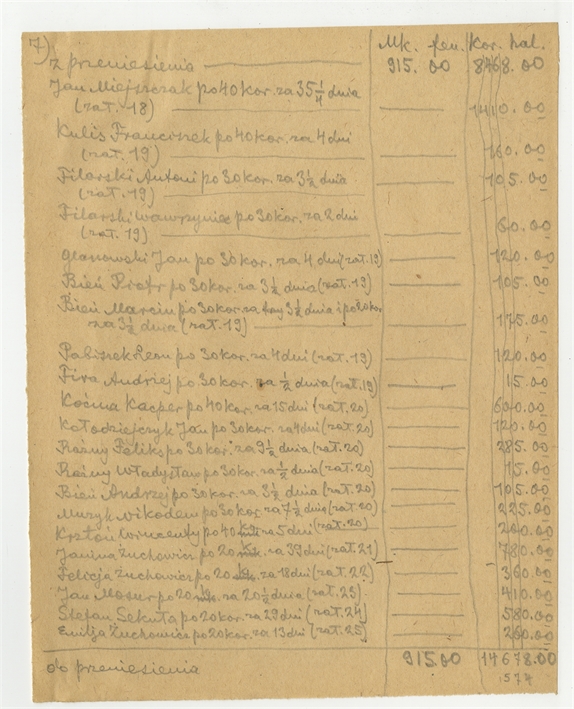 7)
Mk. fen. Kor. hal.
z przeniesienia 915.00 8468.00
Jan Miejszczak po 40 kor. za 35 1/4 dnia
(zał. 18) 1410.00
Kulis Franciszek po 40 kor. za 4 dni
(zał. 19) 160.00
Filarski Antoni po 30 kor. za 3 1/2 dnia
(zał. 19) 105.00
Filarski Wawrzyniec po 30 kor. za 2 dni
(zał. 19) 60.00
Glanowski Jan po 30 kor. za 4 dni (zał. 19) 120.00
Bień Piotr po 30 kor. za 3 1/2 dnia (zał. 19) 105.00
Bień Marcin po 30 kor za 3 1/2 dnia i po 20 kor
za 3 1/2 dnia (zał. 19) 175.00
Pabiszek Leon po 30 kor. za 4 dni (zał. 19) 120.00
Fira Andrzej po 30 kor. za 1/2 dnia (zał. 19) 15.00
Koćma Kacper po 40 kor. za 15 dni (zał. 20) 600.00
Kołodziejczyk Jan po 30 kor. za 4 dni (zał. 20) 120.00
Rośny Feliks po 30 kor. za 9 1/2 dnia (zał. 20) 285.00
Rośny Władysław po 30 kor. za 1/2 dnia (zał. 20) 15.00
Bień Andrzej po 30 kor. za 3 1/2 dnia (zał. 20) 105.00
Muzyk Nikodem po 30 kor za 7 1/2 dnia (zał. 20) 225.00
Krztoń Wincenty po 40 K. za 5 dni (zał. 20) 200.00
Janina Żuchowicz po 20 K. za 39 dni (zał. 21) 780.00
Felicja Żuchowicz po 20 K. za 18 dni (zał. 22) 360.00
Jan Mosur po 20 K. za 20 1/2 dnia (zał. 23) 410.00
Stefan Sekuła po 20 kor. za 29 dni (zał. 24) 580.00
Emilja Żuchowicz po 20 kor. za 13 dni (zał. 25) 260.00
do przeniesienia 915.00 14678.00
574